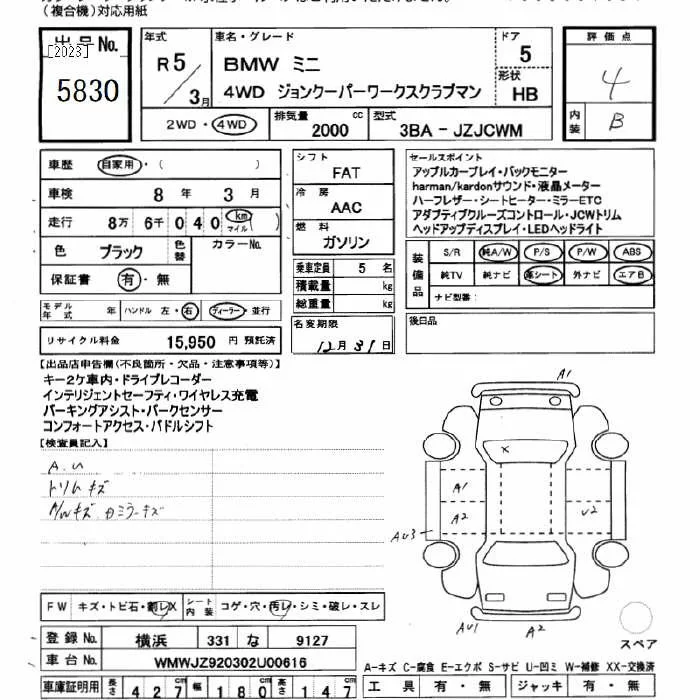 （複合機）対応用紙
出品No.
[2023]
5830
年式
R5/3月
車名・グレード
BMW ミニ
4WD ジョンクーパーワークスクラブマン
ドア
5
形状
HB
評価点
4
内装
B
2WD・4WD
排気量
2000 cc
型式
3BA - JZJCWM
車歴 自家用・( )
車検 8年 3月
走行 8万 6千 040 km マイル ( )
色 ブラック 色替 カラーNo.
保証書 有・無
シフト
FAT
冷房
AAC
燃料
ガソリン
乗車定員 5 名
積載量 kg
総重量 kg
セールスポイント
アップルカープレイ・バックモニター
harman/kardonサウンド・液晶メーター
ハーフレザー・シートヒーター・ミラーETC
アダプティブクルーズコントロール・JCWトリム
ヘッドアップディスプレイ・LEDヘッドライト
装備品
S/R 純A/W P/S P/W ABS
純TV 純ナビ 革シート 外ナビ エアB
ナビ型番：
モデル年式 年 ハンドル 左・右 ディーラー・並行
リサイクル料金 15,950 円 預託済
名変期限
12月31日
後日品
【出品店申告欄(不良箇所・欠品・注意事項等)】
キー2ケ車内・ドライブレコーダー
インテリジェントセーフティ・ワイヤレス充電
パーキングアシスト・パークセンサー
コンフォートアクセス・パドルシフト
【検査員記入】
A.U
トリムキズ
A/Wキズ カミラーキズ
A1
X
A1
A2
U2
AU3
AU1
A2
スペア
FW キズ・トビ石・割レX シート内装 コゲ・穴・汚レ・シミ・破レ・スレ
登録No. 横浜 331 な 9127
車台No. WMWJZ920302U00616
車庫証明用 長さ 427 幅 180 高さ 147
A-キズ C-腐食 E-エクボ S-サビ U-凹ミ W-補修 XX-交換済
工具 有・無 ジャッキ 有・無